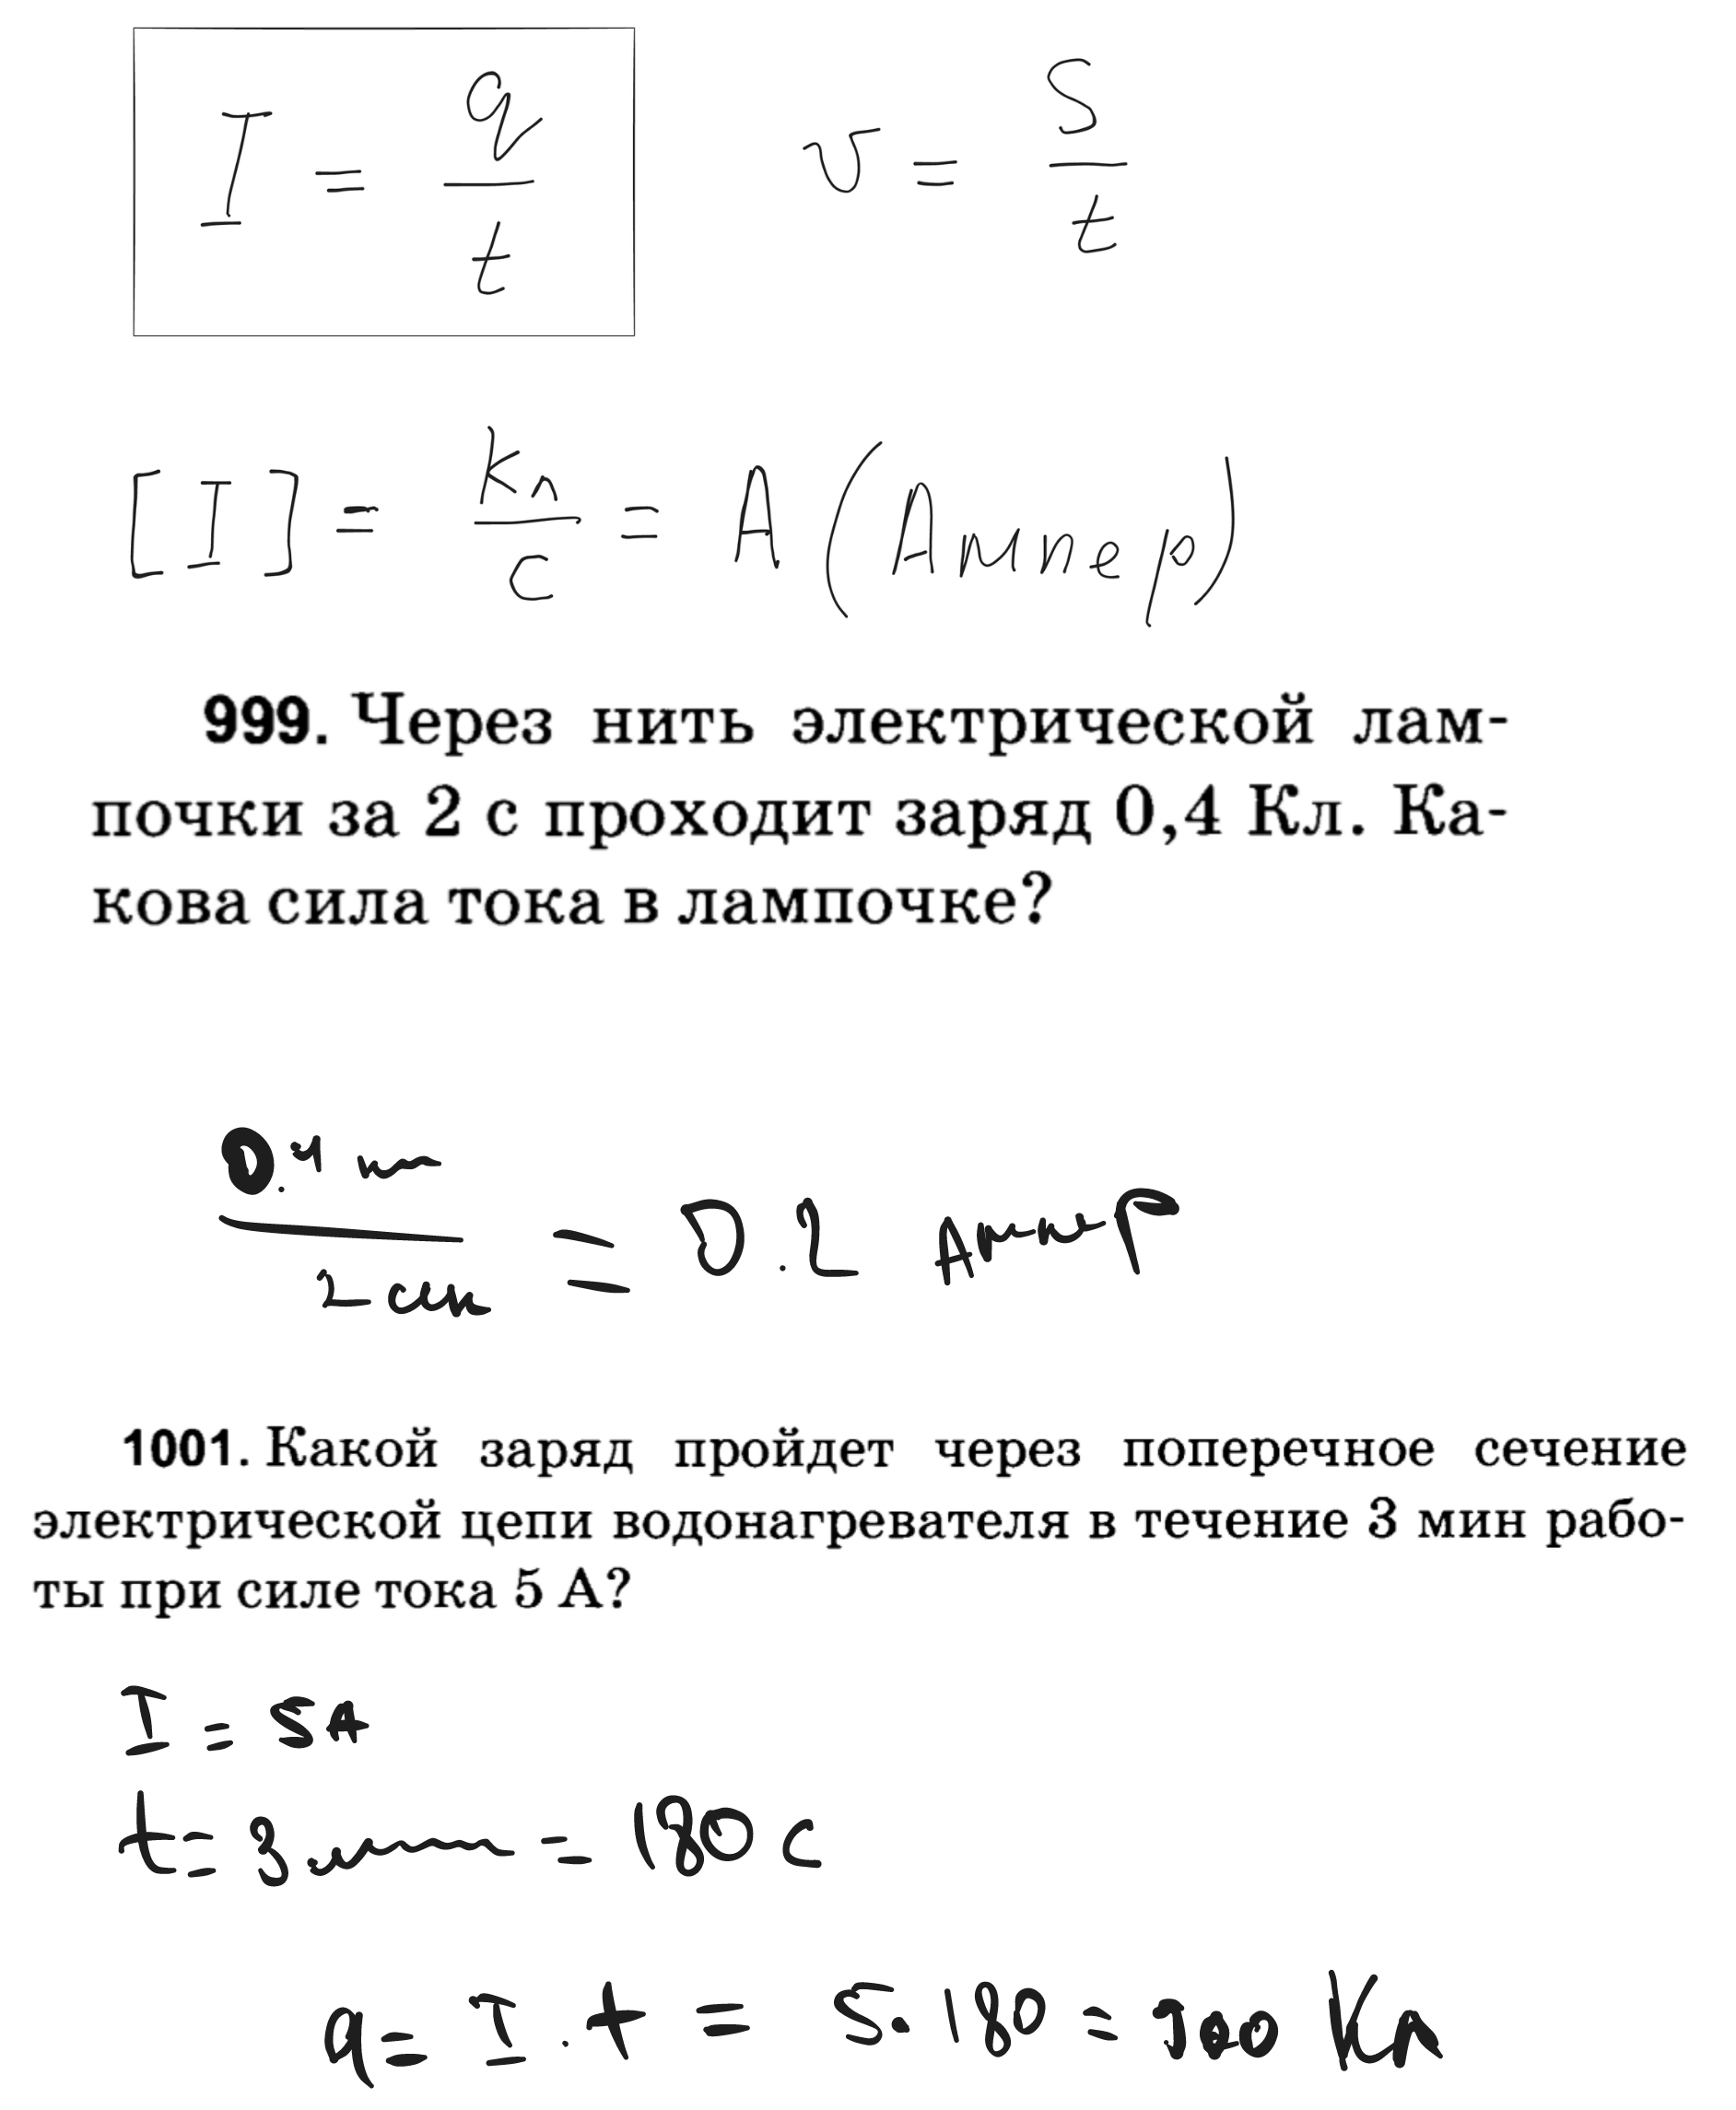 I = q/t    v = S/t
[I] = Кл/с = А (Ампер)
999. Через нить электрической лам-
почки за 2 с проходит заряд 0,4 Кл. Ка-
кова сила тока в лампочке?
0.4 кл / 2 сек = 0.2 Ампер
1001. Какой заряд пройдет через поперечное сечение
электрической цепи водонагревателя в течение 3 мин рабо-
ты при силе тока 5 А?
I = 5А
t = 3 мин = 180 с
q = I · t = 5 · 180 = 900 Кл